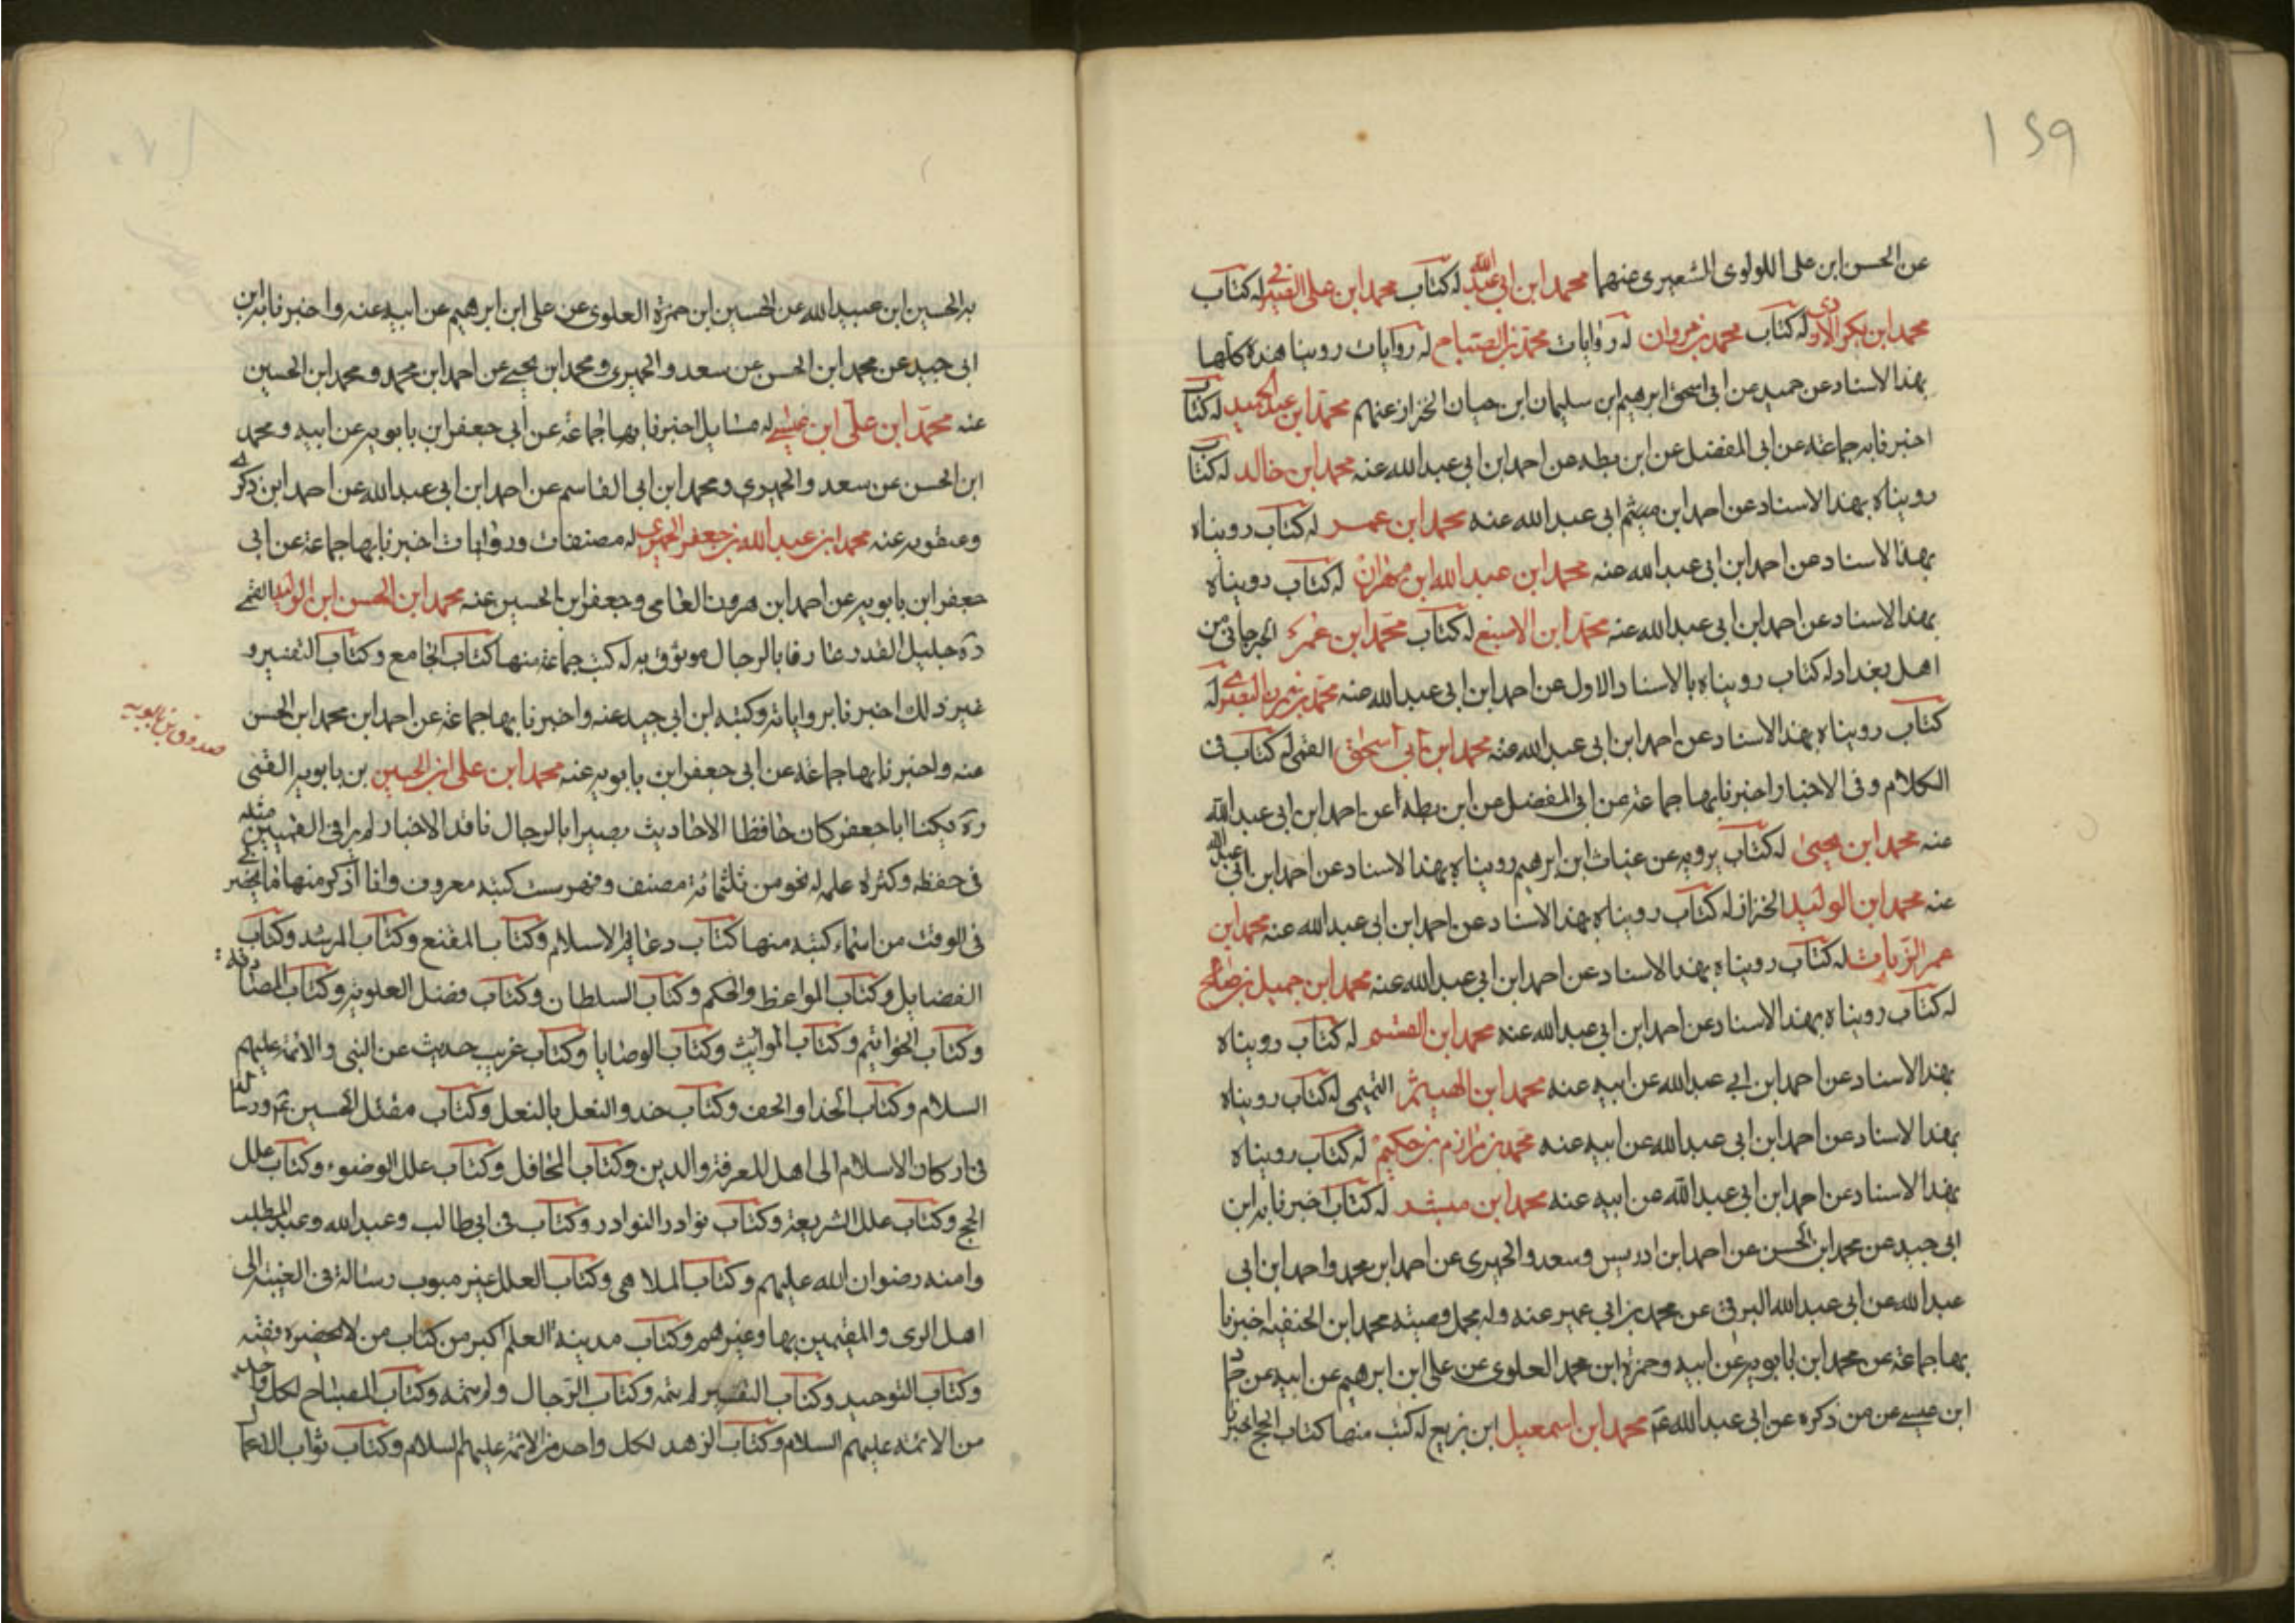 ١٤٩
عن الحسن ابن على اللولوى الشعيرى عنهما محمد ابن ابى عبد الله له كتاب محمد ابن على له كتاب
محمد ابن بكر الازدى له كتاب محمد بن مروان له روايات محمد بن الصباح له روايات روينا هذه كلها
بهذا الاسناد عن حميد عن ابى اسحق ابرهيم ابن سليمان ابن حيان الخزاز عنهم محمد ابن عبد الحميد له كتاب
اخبرنا به جماعة عن ابى المفضل عن ابن بطه عن احمد ابن ابى عبد الله عنه محمد ابن خالد له كتاب
رويناه بهذا الاسناد عن احمد ابن ميثم ابى عبد الله عنه محمد ابن عمر له كتاب رويناه
بهذا الاسناد عن احمد ابن ابى عبد الله عنه محمد ابن عبد الله ابن مهران له كتاب رويناه
بهذا الاسناد عن احمد ابن ابى عبد الله عنه محمد ابن الاصبغ له كتاب محمد ابن عمرك الجرجانى من
اهل بغداد له كتاب رويناه بالاسناد الاول عن احمد ابن ابى عبد الله عنه محمد بن له
كتاب رويناه بهذا الاسناد عن احمد ابن ابى عبد الله عنه محمد ابن ابى اسحق القمى له كتاب فى
الكلام وفى الاخبار اخبرنا بها جماعة عن ابى المفضل عن ابن بطه عن احمد ابن ابى عبد الله
عنه محمد ابن يحيى له كتاب يرويه عن غياث ابن ابرهيم رويناه بهذا الاسناد عن احمد ابن ابى عبد الله
عنه محمد ابن الوليد الخزاز له كتاب رويناه بهذا الاسناد عن احمد ابن ابى عبد الله عنه محمد ابن
عمر الزيات له كتاب رويناه بهذا الاسناد عن احمد ابن ابى عبد الله عنه محمد ابن جميل بن صالح
له كتاب رويناه بهذا الاسناد عن احمد ابن ابى عبد الله عنه محمد ابن القسم له كتاب رويناه
بهذا الاسناد عن احمد ابن ابى عبد الله عن ابيه عنه محمد ابن الهيثم التميمى له كتاب رويناه
بهذا الاسناد عن احمد ابن ابى عبد الله عن ابيه عنه محمد بن مرازم بن حكيم له كتاب رويناه
بهذا الاسناد عن احمد ابن ابى عبد الله عن ابيه عنه محمد ابن ميشر له كتاب اخبرنا به ابن
ابى جيد عن محمد ابن الحسن عن احمد ابن ادريس وسعد والحميرى عن احمد ابن محمد واحمد ابن ابى
عبد الله عن ابى عبد الله البرقى عن محمد بن ابى عمير عنه وله محمل وصيته محمد ابن الحنفيه اخبرنا
بها جماعة عن محمد ابن بابويه عن ابيه وحمزة ابن محمد العلوى عن على ابن ابرهيم عن ابيه عن حماد
ابن عيسى عن من ذكره عن ابى عبد الله ع محمد ابن اسمعيل ابن بزيع له كتب منها كتاب الحج اخبرنا
به الحسين ابن عبيد الله عن الحسين ابن حمزة العلوى عن على ابن ابرهيم عن ابيه عنه واخبرنا به ابن
ابى جيد عن محمد ابن الحسن عن سعد والحميرى ومحمد ابن يحيى عن احمد ابن محمد ومحمد ابن الحسين
عنه محمد ابن على ابن عيسى له مسايل اخبرنا بها جماعة عن ابى جعفر ابن بابويه عن ابيه ومحمد
ابن الحسن عن سعد والحميرى ومحمد ابن ابى القاسم عن احمد ابن ابى عبد الله عن احمد ابن ذكرى
وعنقويه عنه محمد ابن عبد الله بن جعفر الحميرى له مصنفات وروايات اخبرنا بها جماعة عن ابى
جعفر ابن بابويه عن احمد ابن هرون الفامى وجعفر ابن الحسين عنه محمد ابن الحسن ابن الوليد القمى
ره جليل القدر عارفا بالرجال موثوق به له كتب جماعة منها كتاب الجامع وكتاب التفسير و
غير ذلك اخبرنا برواياته وكتبه ابن ابى جيد عنه واخبرنا بها جماعة عن احمد ابن محمد ابن الحسن
عنه واخبرنا بها جماعة عن ابى جعفر ابن بابويه عنه محمد ابن على ابن الحسين بن بابويه القمى
صدوق بن بابويه
ره يكنا ابا جعفر كان حافظا الاحاديث بصيرا بالرجال ناقد الاخبار لم يرا فى القميين مثله
فى حفظه وكثرة علمه له نحو من ثلثمائة مصنف وفهرست كتبه معروف وانا اذكر منها ما يحضرنى
فى الوقت من اسماء كتبه منها كتاب دعائم الاسلام وكتاب المقنع وكتاب المرشد وكتاب
الفضايل وكتاب المواعظ والحكم وكتاب السلطان وكتاب فضل العلويه وكتاب المصادقة
وكتاب الخواتيم وكتاب المواريث وكتاب الوصايا وكتاب غريب حديث عن النبى والائمة عليهم
السلام وكتاب الحذا والخف وكتاب حذو النعل بالنعل وكتاب مقتل الحسين ع ورسالة
فى اركان الاسلام الى اهل المعرفة والدين وكتاب المحافل وكتاب علل الوضوء وكتاب علل
الحج وكتاب علل الشريعة وكتاب نوادر النوادر وكتاب فى ابى طالب وعبد الله وعبد المطلب
وامنه رضوان الله عليهم وكتاب الملاهى وكتاب العلل غير مبوب رسالة فى الغيبة الى
اهل الرى والمقيمين بها وغيرهم وكتاب مدينة العلم اكبر من كتاب من لا يحضره فقيه
وكتاب التوحيد وكتاب التفسير لم يتمه وكتاب الرجال ولم يتمه وكتاب المصباح لكل واحد
من الائمة عليهم السلام وكتاب الزهد لكل واحد من الائمة عليهم السلام وكتاب ثواب الاعما